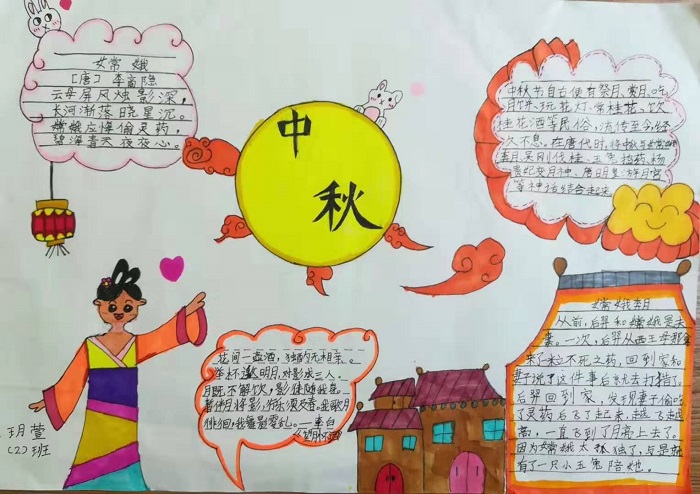 女常 娥
[唐] 李商隐
云母屏风烛影深，
长河渐落晓星沉。
嫦娥应悔偷灵药，
碧海青天夜夜心。
中
秋
中秋节自古便有祭月、赏月、吃
月饼、玩花灯、赏桂花、饮
桂花酒等民俗，流传至今，经
久不息。在唐代时，将
月、吴刚伐桂、玉兔捣药、杨
贵妃变月神、唐明皇游月宫
等神话结合起来
花间一壶酒，独酌无相亲。
举杯邀明月，对影成三人。
月既不解饮，影徒随我身。
暂伴月将影，行乐须及春。我歌月
徘徊，我舞影零乱。——李白
嫦娥奔月
从前，后羿和嫦娥是夫
妻，一次，后羿从西王母那
来了粒不死之药，回到家和
妻子说了这件事后就去打猎了。
后羿回到家，发现妻子偷吃
了灵药后飞了起来，越飞越
高，一直飞到了月亮上去了。
因为嫦娥太孤独了，于是就
有了一只小玉兔陪她。
玥萱
(2)班